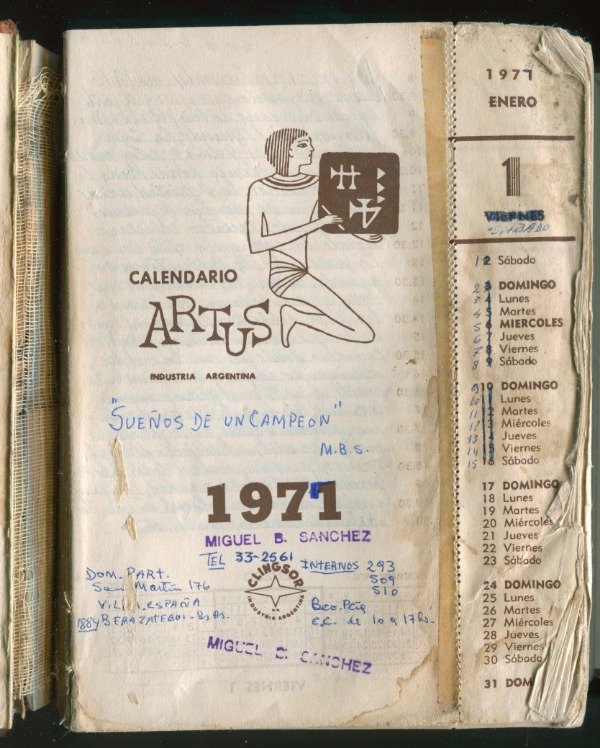 CALENDARIO
ARTUS
INDUSTRIA ARGENTINA
"SUEÑOS DE UN CAMPEON"
M.B.S.
1971
MIGUEL B. SANCHEZ
TEL 33-2561
INTERNOS 293
509
510
DOM. PART.
San Martin 176
VILLA ESPAÑA
1884 BERAZATEGUI - Bs. As.
CLINGSOR
INDUSTRIA ARGENTINA
Bco. Pcia
de 10 a 17 hs.
MIGUEL B. SANCHEZ
1977
ENERO
1
VIERNES
SABADO
1 2 Sábado
2 3 DOMINGO
3 4 Lunes
4 5 Martes
5 6 MIERCOLES
6 7 Jueves
7 8 Viernes
8 9 Sábado
9 10 DOMINGO
10 11 Lunes
11 12 Martes
12 13 Miércoles
13 14 Jueves
14 15 Viernes
15 16 Sábado
17 DOMINGO
18 Lunes
19 Martes
20 Miércoles
21 Jueves
22 Viernes
23 Sábado
24 DOMINGO
25 Lunes
26 Martes
27 Miércoles
28 Jueves
29 Viernes
30 Sábado
31 DOM